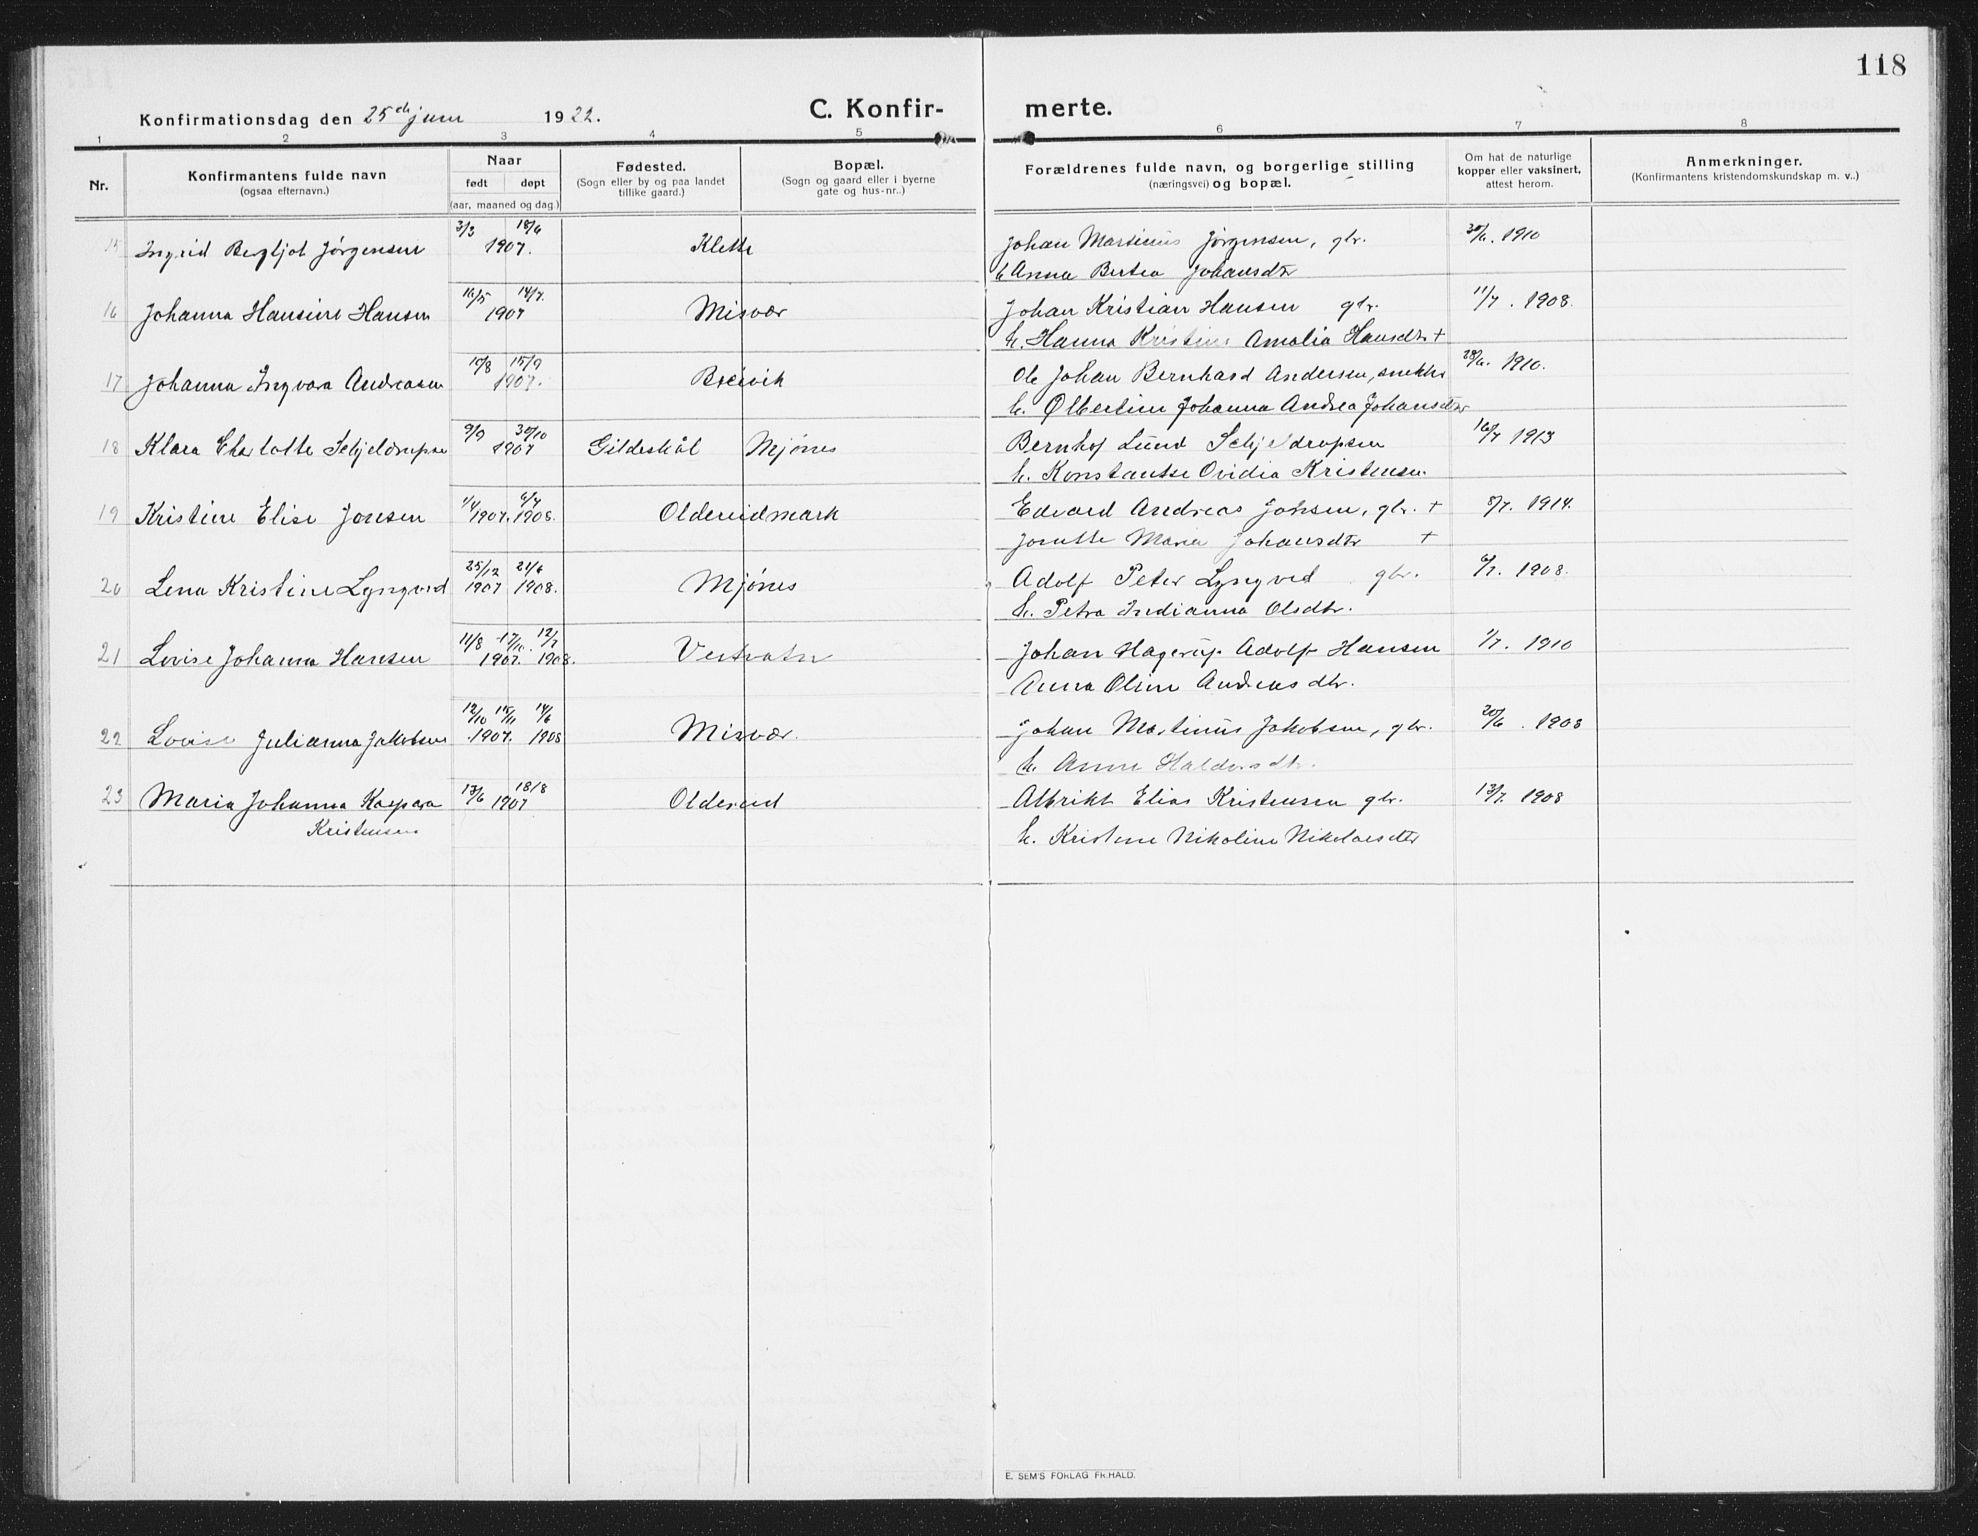 118
Konfirmationsdag den 25de juni 1922.
C. Konfir-
merte.
1 2 3 4 5 6 7 8
Nr.
Konfirmantens fulde navn
(ogsaa efternavn.)
Naar
født døpt
(aar, maaned og dag.)
Fødested.
(Sogn eller by og paa landet
tillike gaard.)
Bopæl.
(Sogn og gaard eller i byerne
gate og hus-nr..)
Forældrenes fulde navn, og borgerlige stilling
(næringsvei) og bopæl.
Om hat de naturlige
kopper eller vaksinert,
attest herom.
Anmerkninger.
(Konfirmantens kristendomskundskap m. v..)
15 Ingrid Bergljot Jørgensen 3/3 18/6 1907. Klette Johan Martinus Jørgensen, gbr. 30/6. 1910
h Anna Bertea Johansdtr
16 Johanna Hansine Hansen 16/5 14/7. 1907 Misvær Johan Kristian Hansen gbr. 11/7. 1908.
h. Hanna Kristine Amalia Hansdtr +
17 Johanna Ingvara Andreasen 15/8 15/9 1907. Breivik Ole Johan Bernhard Andersen, snekker 28/6. 1910.
h. Olbertine Johanna Andrea Johansdtr
18 Klara Charlotte Schjeldrupsen 9/9 30/10 1907 Gildeskål Mjønes Bernhof Lund Schjeldrupsen 16/7 1913
h. Konstantse Ovidia Kristensen
19 Kristine Elise Jonsen 1/4 1907. 6/7 1908. Oldereidmark Edvard Andreas Johsen, gbr. + 8/7. 1914.
Jonette Maria Johansdtr +
20 Lena Kristine Lyngved 25/12 1907 21/6 1908. Mjönes Adolf Peter Lyngved gbr. 6/7. 1908.
h. Petra Indianna Olsdtr.
21 Lovise Johanna Hansen 11/8 17/11 1907. 12/7 1908. Vestvatn Johan Hagerup Adolf Hansen 1/7. 1910
Anna Oline Andreasdtr.
22 Lovise Julianna Jakobsen 12/10 15/11 1907. 14/6 1908 Misvær. Johan Martinus Jakobsen, gbr. 20/6. 1908
h. Anne Haldorsdtr.
23 Maria Johanna Kaspara 13/6 18/8 1907 Oldereid Albrikt Elias Kristensen gbr. 13/7. 1908
Kristensen h. Kristine Nikoline Nikolaisdtr
E. SEM'S FORLAG FR.HALD.